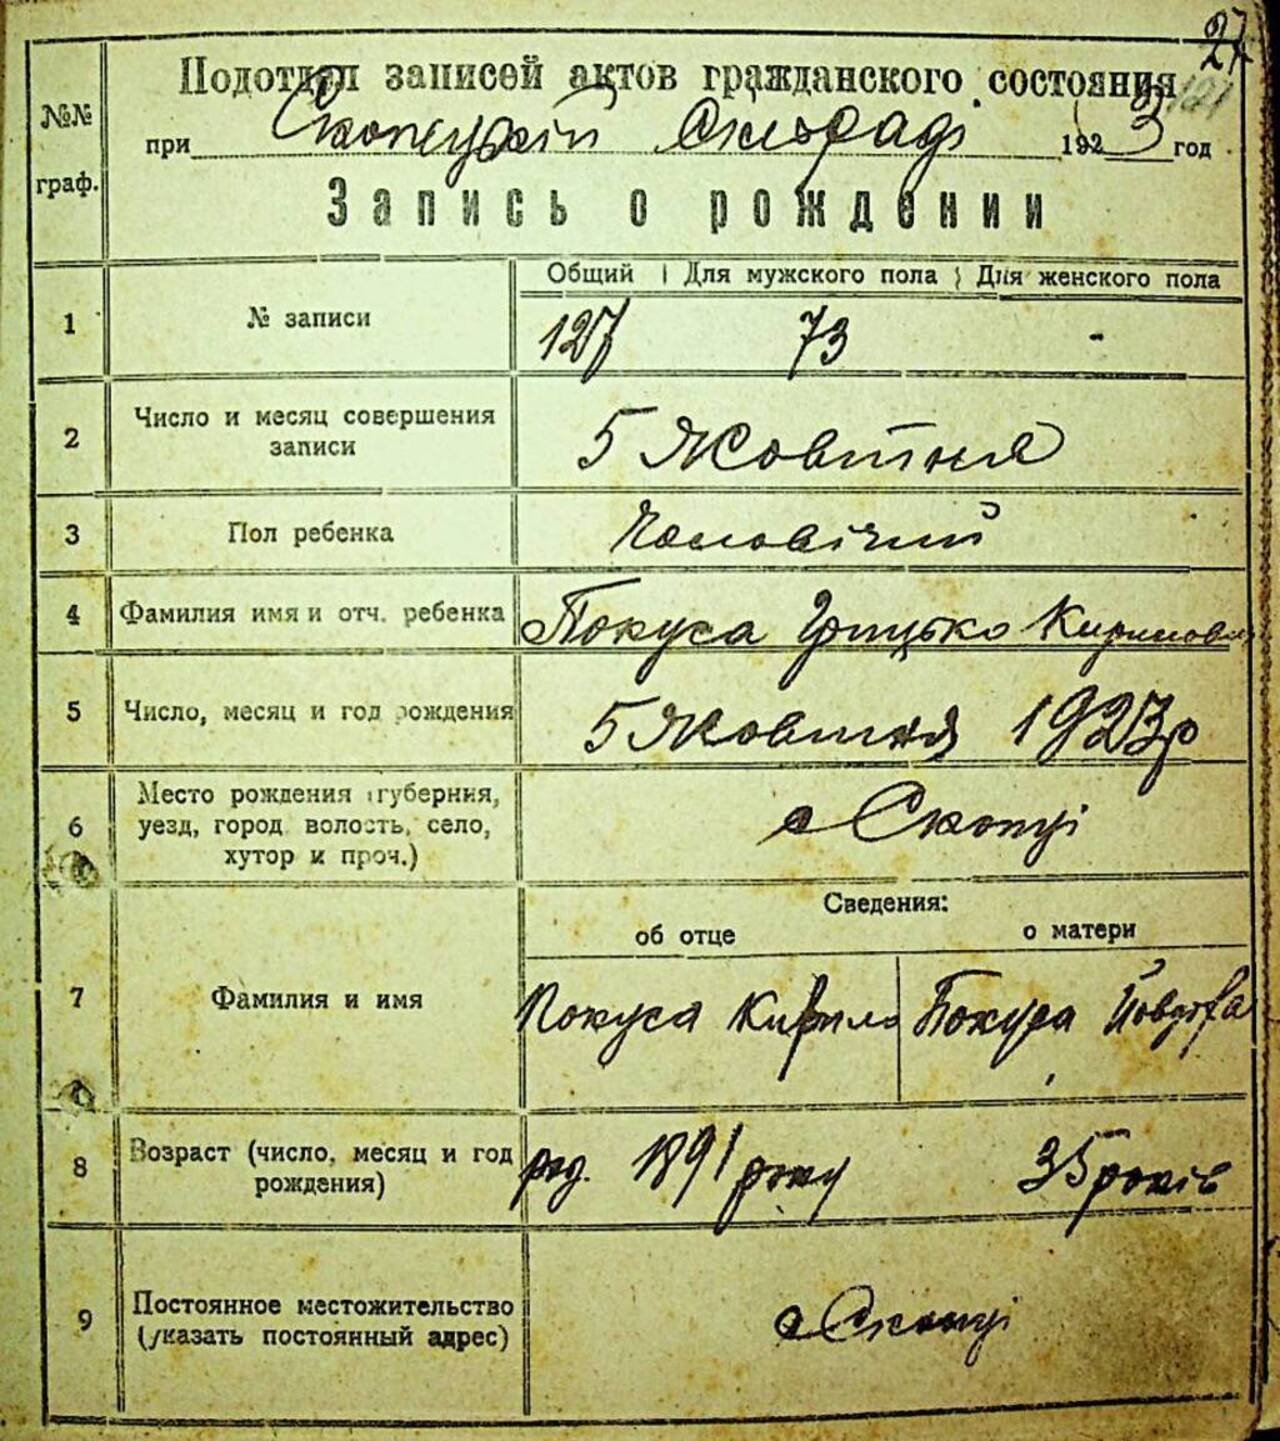 27
№№ граф.
Подотдел записей актов гражданского состояния
при Скопецкій Сільраді 1923 год
Запись о рождении
Общий Для мужского пола Для женского пола
1 № записи 127 73 -
2 Число и месяц совершения записи 5 Жовтня
3 Пол ребенка Чоловічий
4 Фамилия имя и отч. ребенка Покуса Грицько Кирилов
5 Число, месяц и год рождения 5 Жовтня 1923 р
6 Место рождения (губерния, уезд, город волость, село, хутор и проч.) с Скопці
Сведения:
об отце о матери
7 Фамилия и имя Покуса Кирило Покуса
8 Возраст (число, месяц и год рождения) род. 1891 року 35 років
9 Постоянное местожительство (указать постоянный адрес) с Скопці